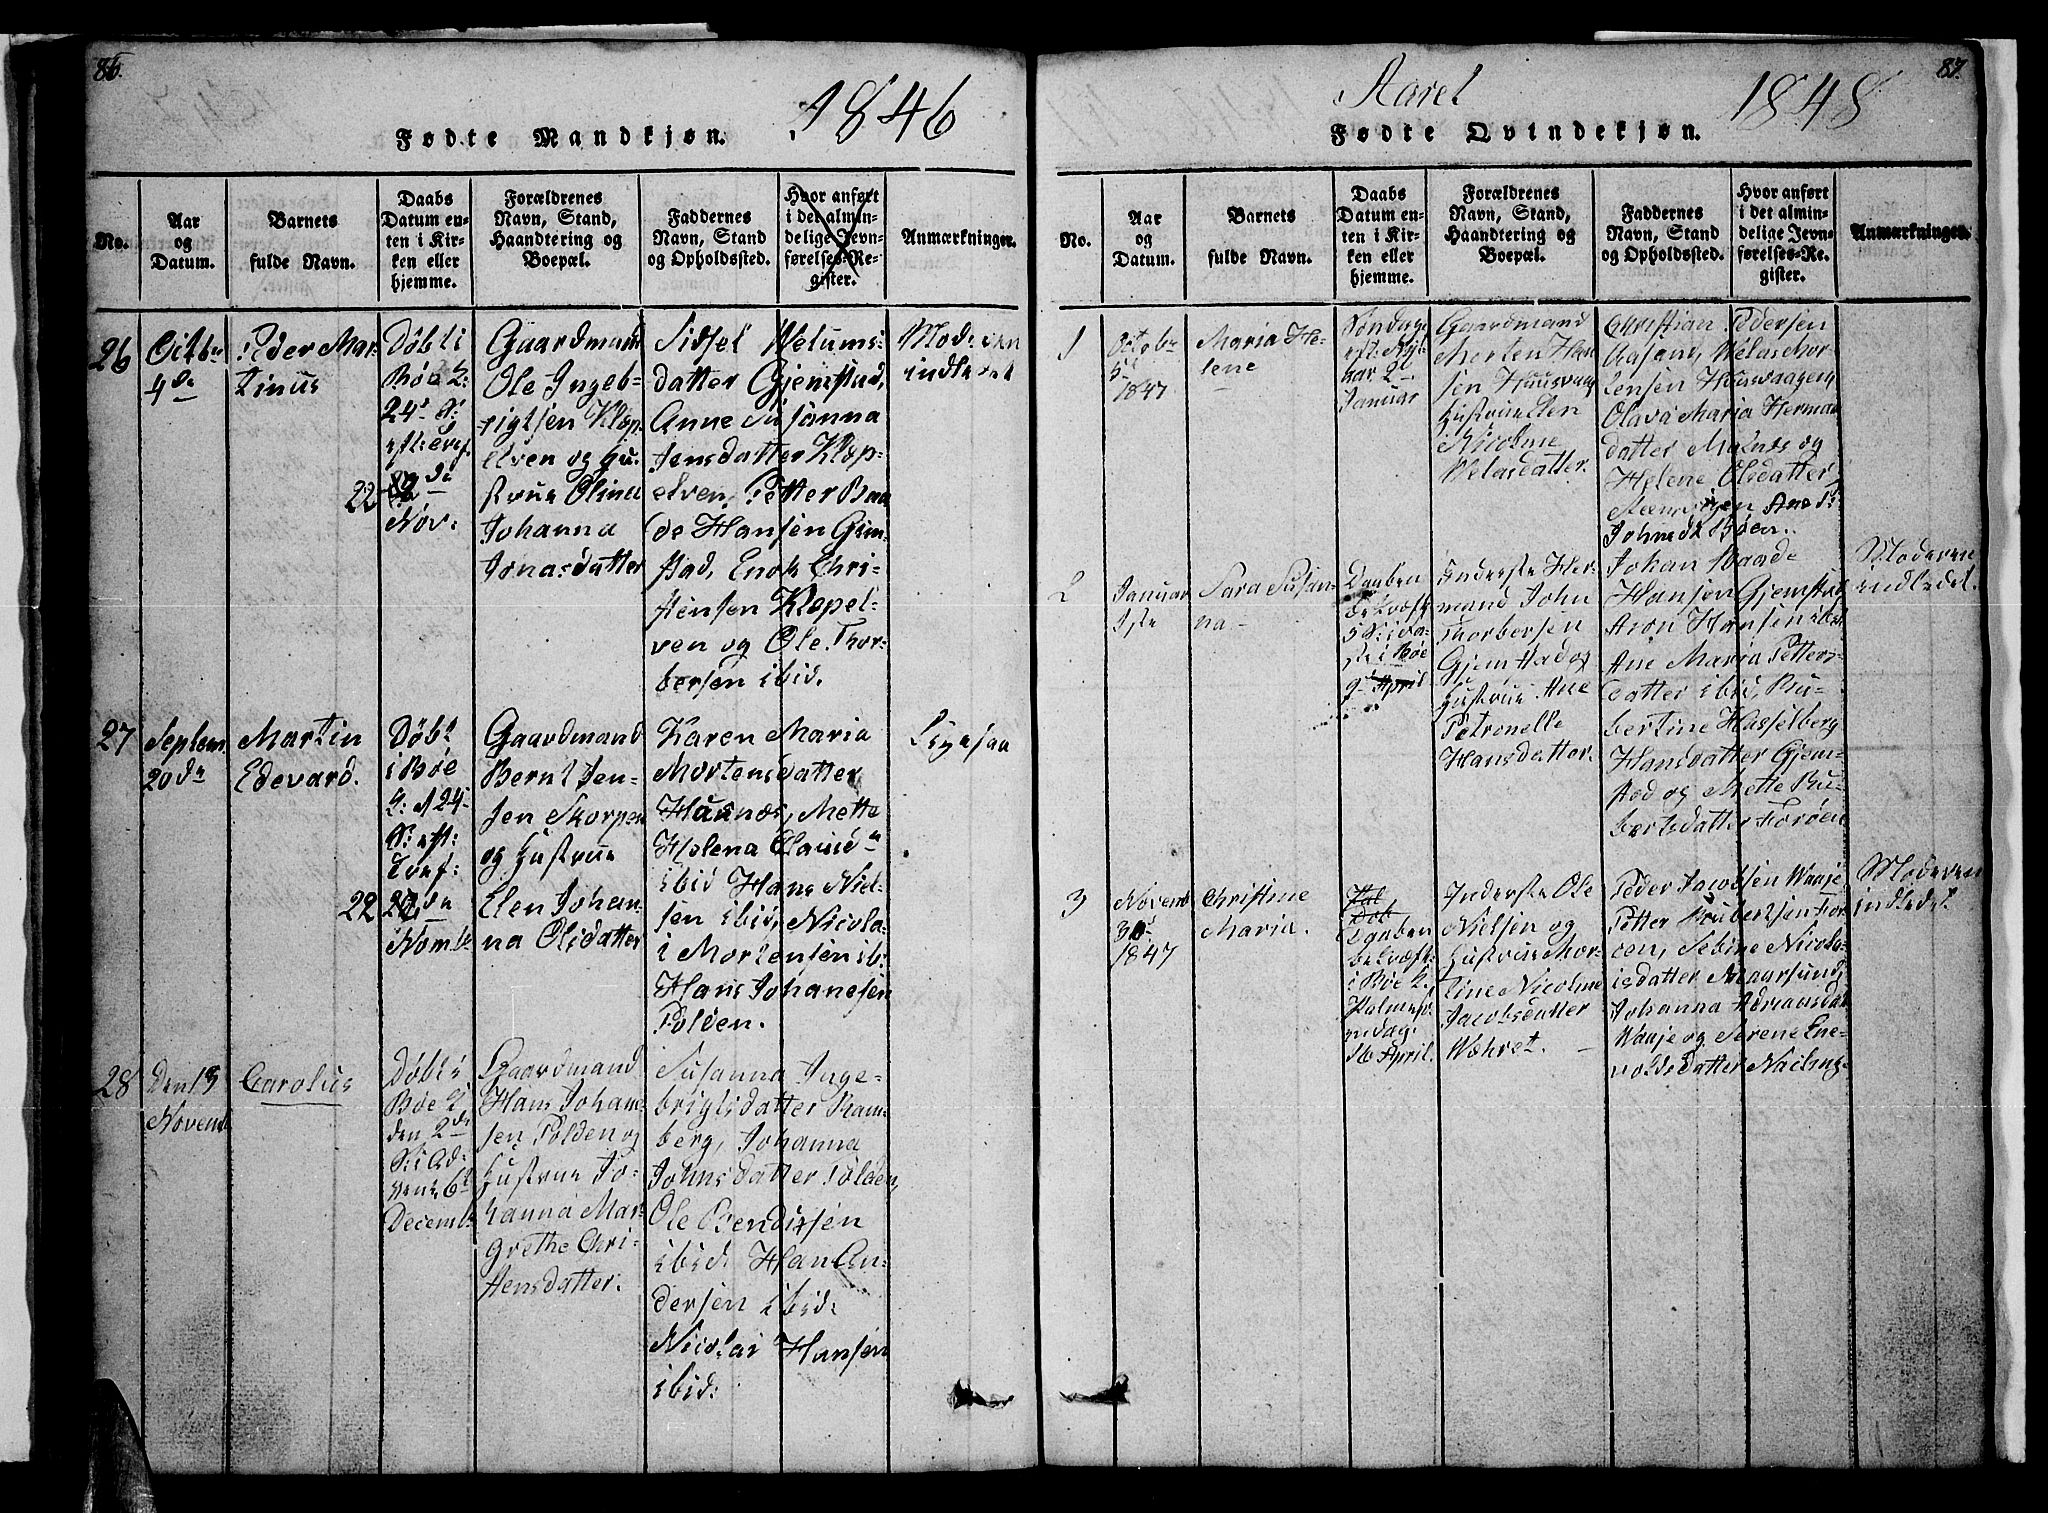 86.
1846
Fødte Mandkjøn.
No.
Aar
og
Datum.
Barnets
fulde Navn.
Daabs
Datum en-
ten i Kir-
ken eller
hjemme.
Forældrenes
Navn, Stand,
Haandtering og
Boepæl.
Faddernes
Navn, Stand
og Opholdssted.
Hvor anført
i det almin-
delige Jevn-
førelses-Re-
gister.
Anmærkninger.
26
Octbr
4de
Peder Mar-
tinus
Døbt i
Bøe K:
24de S:
eft: Tref.
22de
Nov:
Gaardmand
Ole Ingeb-
rigtsen Klep-
elven og Hu-
strue Olina
Johanna
Jonasdatter
Sidsel Welums-
datter Gjemstad,
Anne Susanna
Jensdatter Klep-
elven, Petter Baa
de Hansen Gjem-
stad, Enok Chri-
stensen Klepel-
ven og Ole Thor-
bersen ibid.
Moderen
indledet
27
Septem
20de
Martin
Edevard.
Døbt
i Bøe
K: d 24
S: eft:
Tref:
22de
Novmbr
Gaardmand
Bernt Jen-
sen Skorpen
og Hustrue
Elen Johan-
na Olsdatter
Karen Maria
Mortensdatter
Husnæs, Mette
Helena
ibid Hans Niel-
sen ibid, Nicola-
i Mortensen ib:
Hans Johansen
Polden.
Ligesaa
28
Den 13
Novemb
Carolus
Døbt i
Bøe K
den 2den
S: i Ad-
vent 6t
Decembr
Gaardmand
Hans Johan-
sen Polden og
Hustrue Jo-
hanna Mar-
grethe Chri-
stensdatter.
Susanna Inge-
brigtsdatter Ram-
berg, Johanna
Johnsdatter Polden,
Ole Bendixsen
ibid: Han An-
dersen ibid:
Nicolai Hansen
ibid:
87.
Aaret 1848
Fødte Qvindekjøn.
No.
Aar
og
Datum.
Barnets
fulde Navn.
Daabs
Datum en-
ten i Kir-
ken eller
hjemme.
Forældrenes
Navn, Stand,
Haandtering og
Boepæl.
Faddernes
Navn, Stand
og Opholdssted.
Hvor anført
i det almin-
delige Jevn-
førelses-Re-
gister.
Anmærkninger.
1
Octobr
5
1847
Maria He-
lene
Søndag
eft: Nyt-
aar 2
Januar
Gaardmand
Morten Han
sen Huusvaag
Hustrue Elen
Nicoline
Welasdatter.
Christian Pedersen
Aasand, Welas Mor-
tensen Huusvaagen,
Olava Maria Herman
datter Malnes og
Helene Olsdatter
Johnsdt Bøen.
2
Januar
1ste
Sara Susan-
na
Daaben
bekræft
5 S: i Fa-
ste i Bøe
9de April
Inderste Her-
mand John
Thorbersen
Gjemstad og
Hustrue Ane
Petronelle
Hansdatter.
Johan Baade
Hansen Gjemstad
Aron Hansen ibid
Ane Maria Petters-
datter ibid, Ru-
bertine Hasselberg
Hansdatter Gjem-
stad og Mette Ru-
bertsdatter Forøen
Moderen
indledet.
3
Novemb
30
1847
Christine
Maria.
Daaben
bekræft
i Bøe K.
Palmesø
ndag.
16 April.
Inderste Ole
Nielsen og
Hustrue Mar-
tine Nicoline
Jacobsdatter
Wæhret.
Peder Jacobsen Waaje
Petter Rubertsen For
øen, Sebine Nicola-
isdatter Maarsund,
Johanna Adriansdat
Waaje og Serene Ene-
voldsdatter
Moderen
indledet